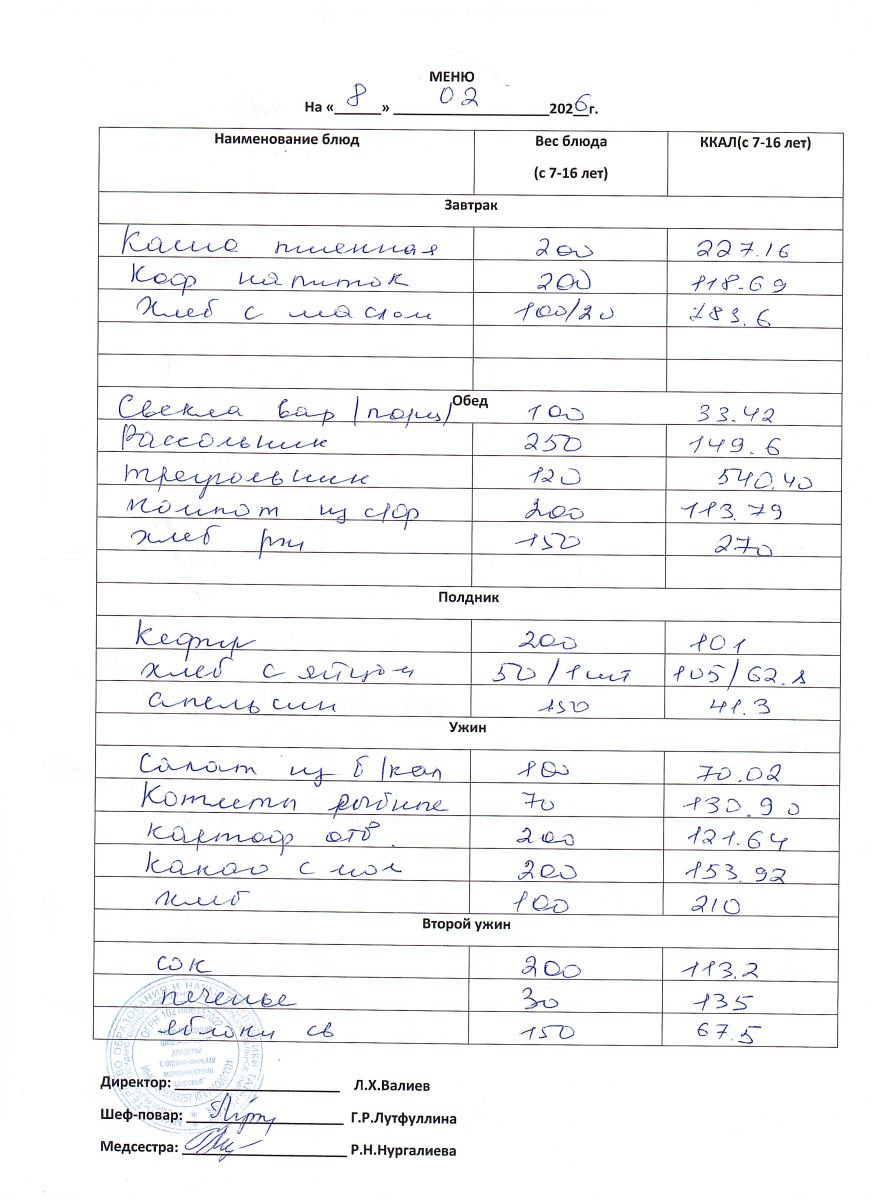 МЕНЮ
На « 8 » 02 2026 г.
Наименование блюд Вес блюда (с 7-16 лет) ККАЛ(с 7-16 лет)
Завтрак
Каша пшенная 200 227.16
Коф напиток 200 118.69
Хлеб с маслом 100/20 283.6
Обед
Свекла вар /порц/ 100 33.42
Рассольник 250 149.6
Треугольник 120 540.40
Компот из с/фр 200 113.79
хлеб рж 150 270
Полдник
Кефир 200 101
хлеб с яйцом 50/1шт 105/62.8
апельсин 150 41.3
Ужин
Салат из б/кап 100 70.02
Котлеты рыбные 70 130.90
картоф отв. 200 121.64
Какао с мол 200 153.92
хлеб 100 210
Второй ужин
сок 200 113.2
печенье 30 135
яблоки св 150 67.5
для детей
с ограниченными
возможностями
здоровья"
Директор: Л.Х.Валиев
Шеф-повар: Г.Р.Лутфуллина
Медсестра: Р.Н.Нургалиева